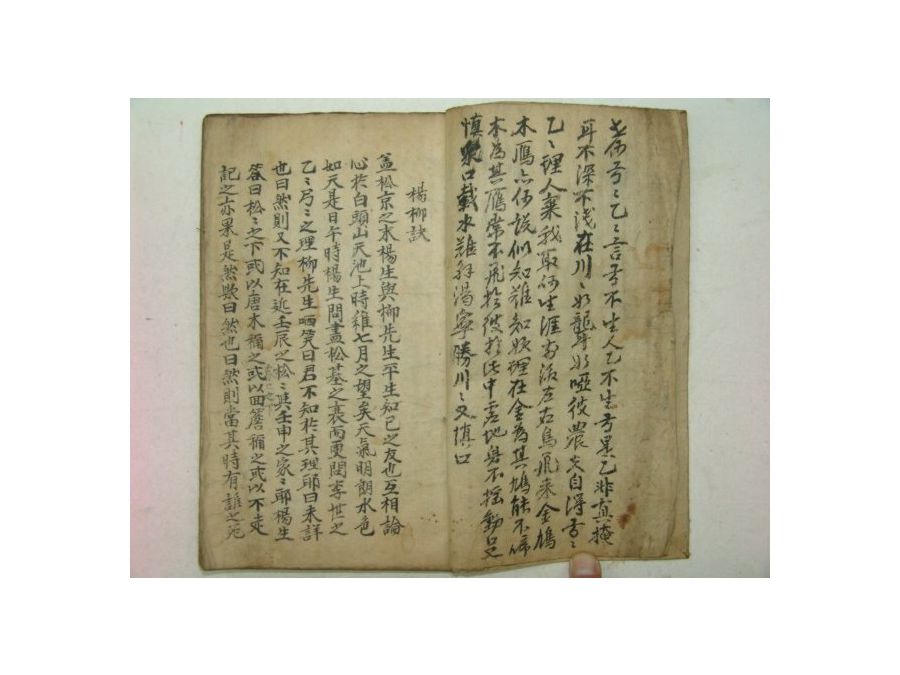 弓弓乙乙言弓不生人乙不生弓是乙非直掩
耳不深不浅在川川如聾如啞彼農夫自得弓弓
乙乙理人棄我取何生涯左右鳥飛来金鳩
木鴈亦何説似知难知妙理在金為其鳩能不
木為其鴈常不飛於彼於此中虚地無不摇動口又
慎眾口載水難解湯寧勝川川又慎口
楊柳訣
盖松京之本楊生與柳先生平生知己之友也互相論
心於白頭山天池上時維七月之望矣天氣明朗水色
如天是日午時楊生問盡松墓之裏而更問季世之
乙乙弓弓之理柳先生哂笑曰君不知於其理耶曰未詳
也曰然則又不知在延壬辰之松松其壬申之家家耶楊生
答曰松松之下或以唐木稱之或以面簷稱之或以不
記之亦果是然歟曰然也曰然則當其時有誰之